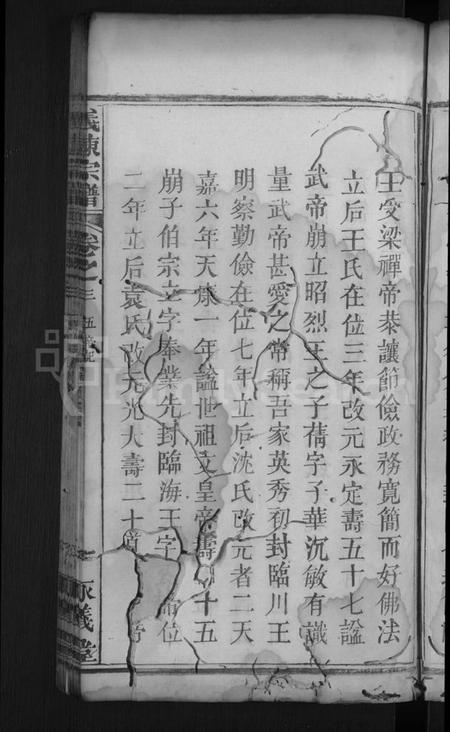 王受梁禪帝恭讓節儉政務寬簡而好佛法
立后王氏在位三年改元永定壽五十七謚
武帝崩立昭烈王之子蒨字子華沉敏有識
量武帝甚愛之常稱吾家英秀初封臨川王
明察勤儉在位七年立后沈氏改元者二天
嘉六年天康一年謚世祖文皇帝壽四十五
崩子伯宗立字奉業先封臨海王字位
二年立后袁氏改元光大壽二十
義陳宗譜
卷之三
永義堂